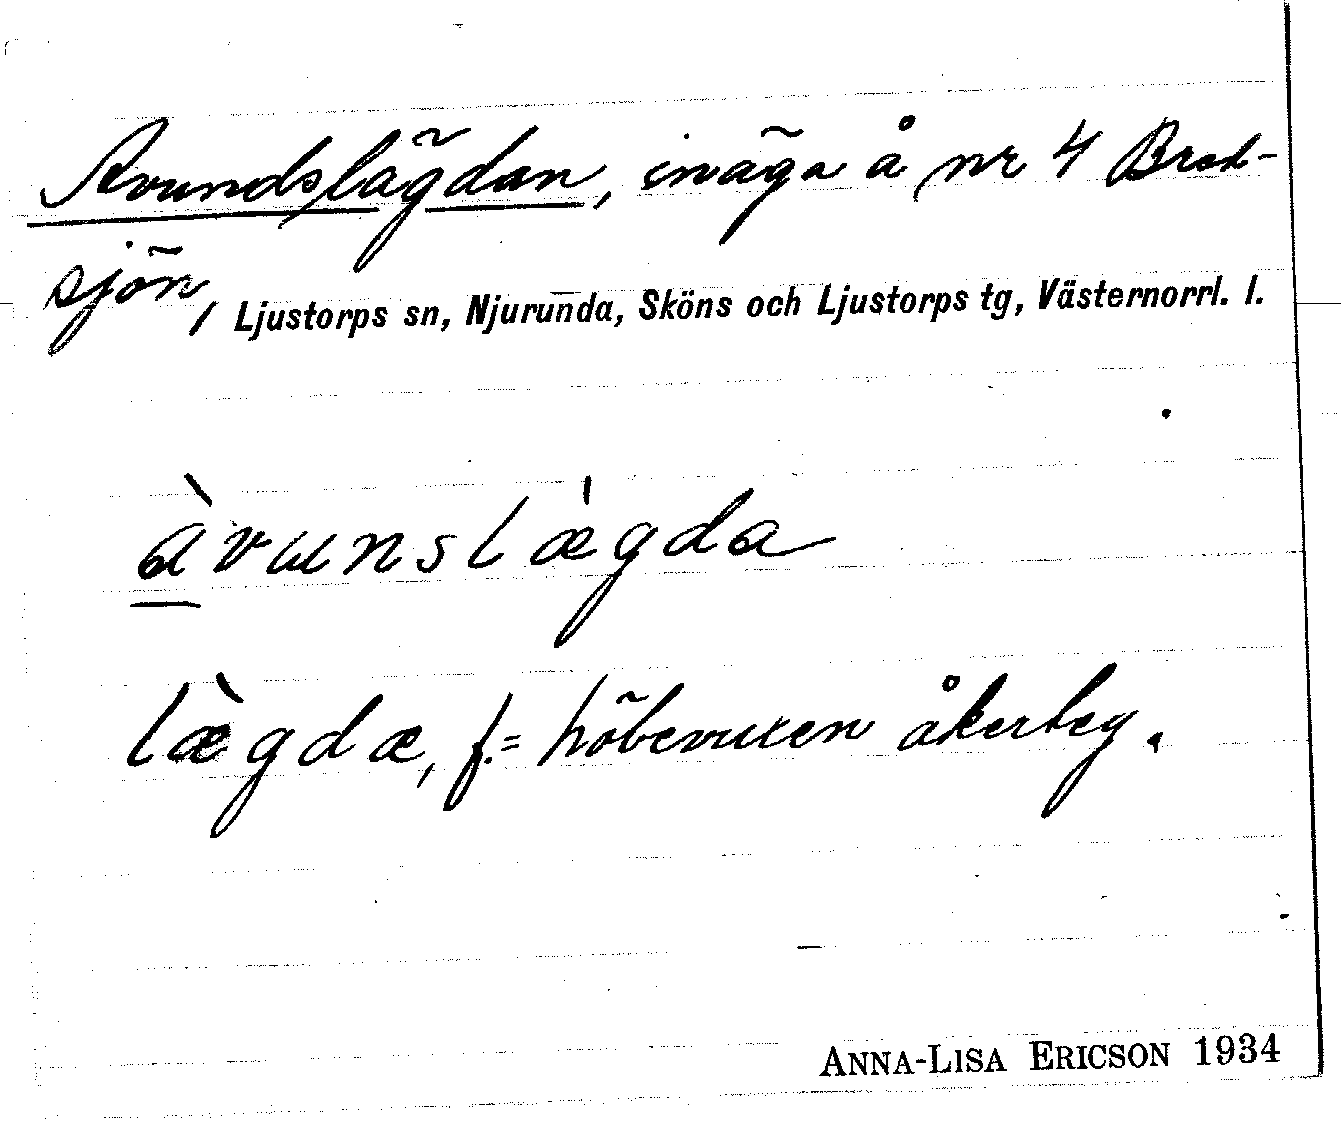 Avundslägdan, inäga å nr 4 Bred-
sjön, Ljustorps sn, Njurunda, Sköns och Ljustorps tg, Västernorrl. l.
àvunslægda
lægdæ, f. = höbevuxen åkerteg.
ANNA-LISA ERICSON 1934